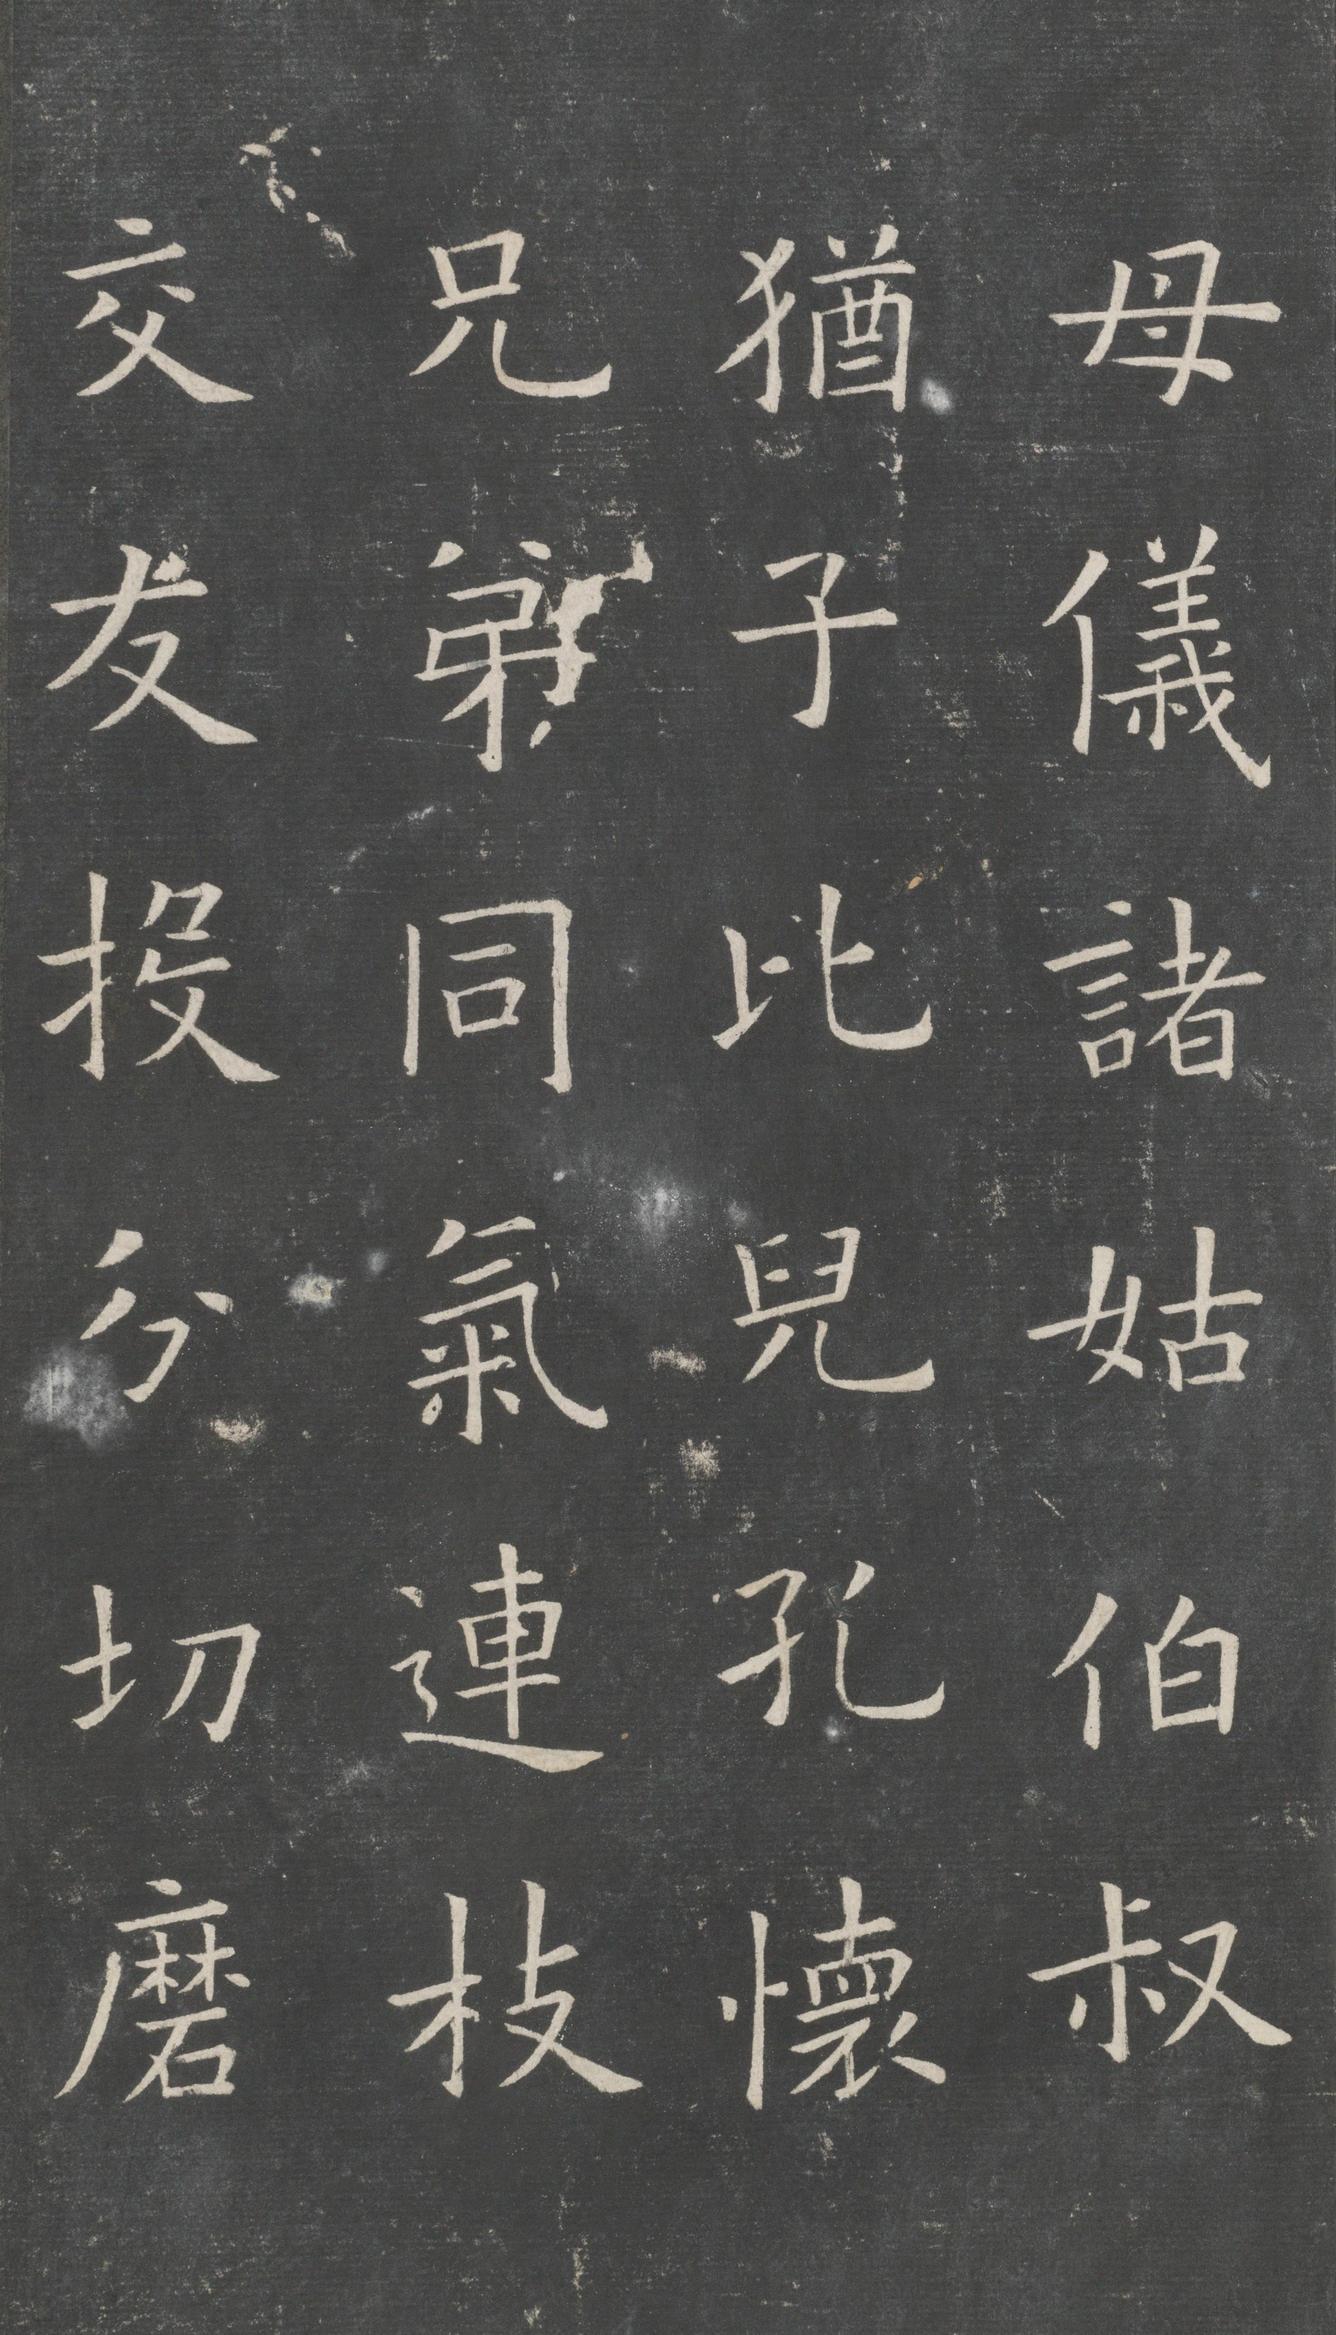 母儀諸姑伯叔
猶子比兒孔懷
兄弟同氣連枝
交友投分切磨